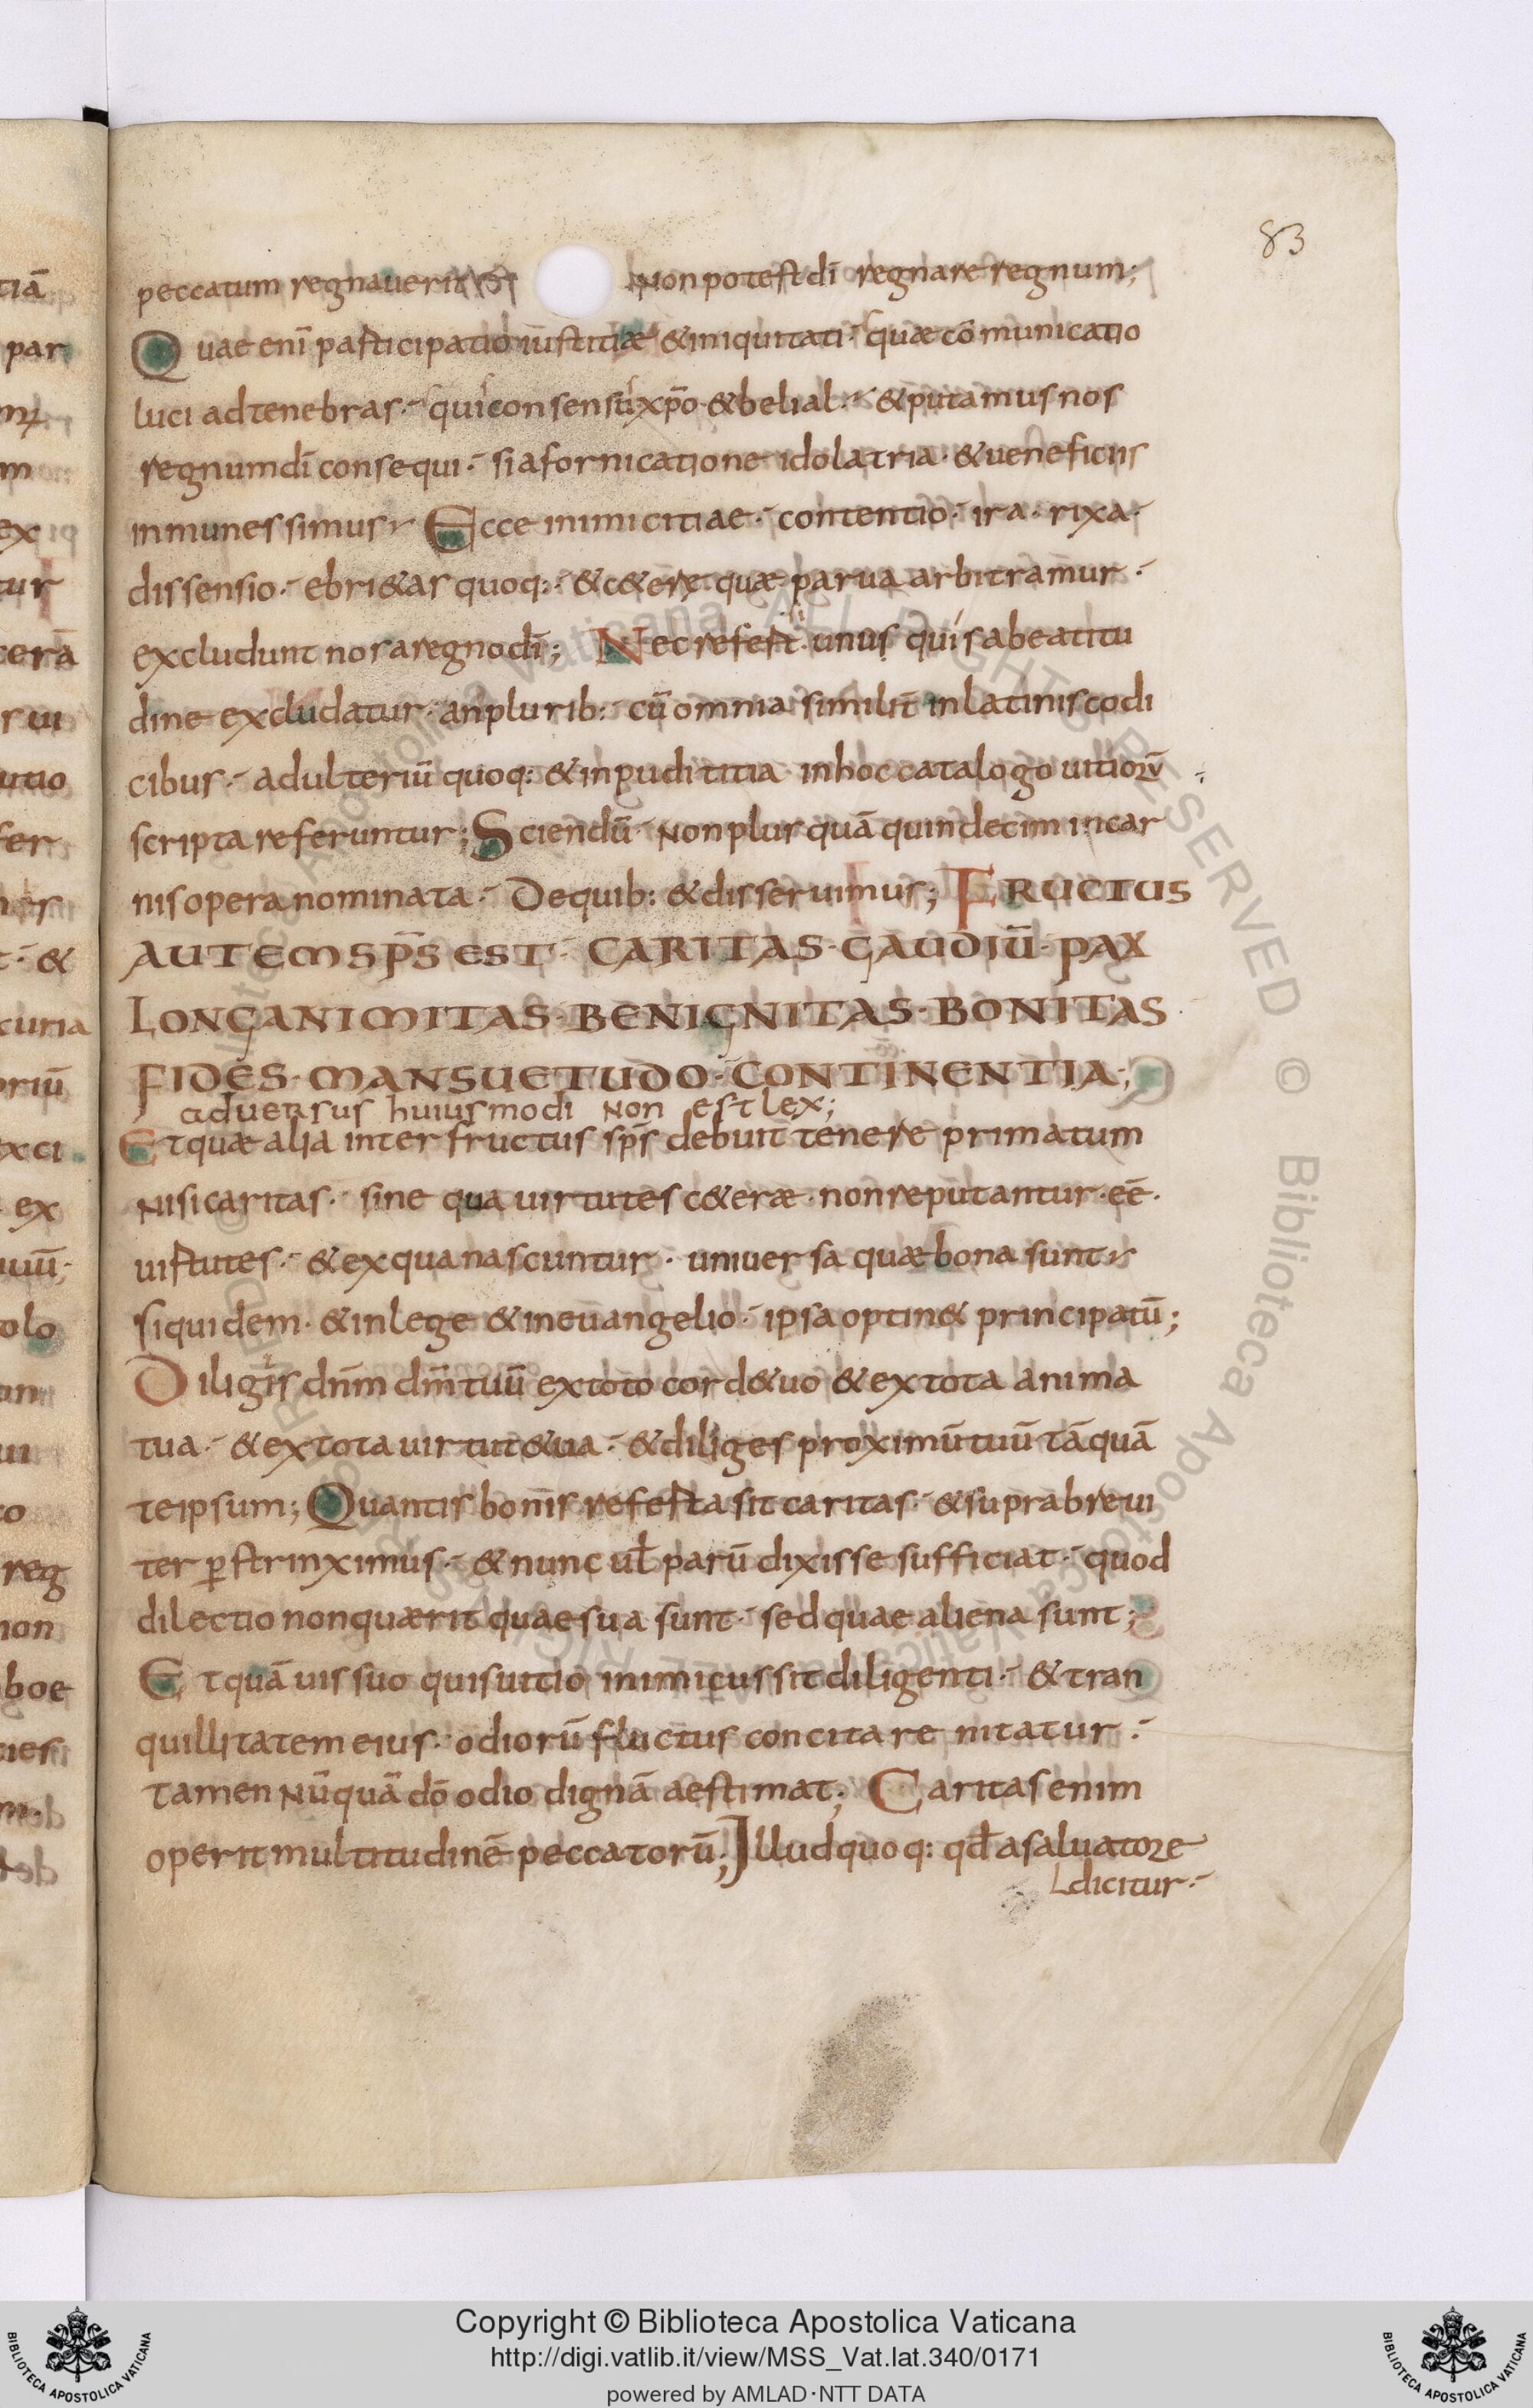 83
peccatum regnauerit non potest dī regnare regnum;
Quae eni̅ participatio iustitiæ & iniquitati· quæ co̅municatio
luci ad tenebras·- qui consensu xp̅o & belial·- & putamus nos
regnum dī consequi·- si a fornicatione idolatria· & ueneficiis
inmunes simus· Ecce inimicitiae·- contentio·- ira· rixa·
dissensio·- ebri&as quoq:·- & c&ere quæ parua arbitramur·-
excludunt nos a regno dī; Nec refert· unus quis a beatitu
dine excludatur· an plurib:· cu̅ omnia similit̅ in latinis codi
cibus·- adulteriu̅ quoq: & inpudititia in hoc catalogo uitioꝝ
scripta referuntur; Sciendu̅·- Non plus quā quindecim in car
nis opera nominata·- De quib: & disseruimus; FRUCTUS
AUTEM SP̅S EST·- CARITAS· GAUDIU̅· PAX
LONGANIMITAS· BENIGNITAS· BONITAS
FIDES· MANSUETUDO·- CONTINENTIA·;
aduersus huiusmodi Non est lex;
Et quæ alia inter fructus sp̅s debuit tenere primatum
Nisi caritas·- sine qua uirtutes c&eræ· non reputantur· ee̅·
uirtutes·- & ex qua nascuntur· uniuersa quæ bona sunt·
siquidem· & in lege & in euangelio·- ipsa optin& principatu̅;
Diligis dn̅m dm̅ tuu̅ ex toto cord& uo & ex tota anima
tua·- & ex tota uirtut& ua·- & diliges proximu̅ tuu̅ tāquā
te ipsum; Quantis bonis referta sit caritas·- & supra breui
ter ꝑstrinximus·- & nunc ul̅ paru̅ dixisse sufficiat·- quod
dilectio non quærit quae sua sunt·- sed quae aliena sunt;
Et quāuis suo quis uitio inimicus sit diligenti·- & tran
quillitatem eius· odioru̅ fluctus concitare nitatur·-
tamen Nu̅quā do̅ odio dignā aestimat; Caritas enim
operit multitudine̅ peccatoru̅; Illud quoq: qd̅ a saluatore
dicitur·-
Copyright © Biblioteca Apostolica Vaticana
http://digi.vatlib.it/view/MSS_Vat.lat.340/0171
powered by AMLAD·NTT DATA